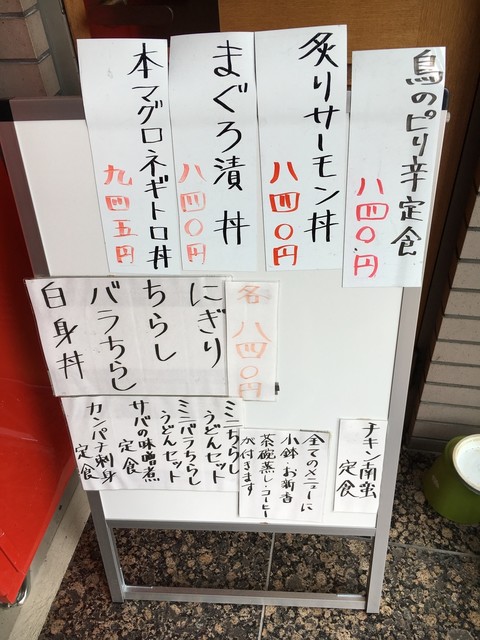 鳥のピリ辛定食
八四〇円
炙りサーモン丼
八四〇円
まぐろ漬丼
八四〇円
本マグロネギトロ丼
九四五円
各八四〇円
にぎり
ちらし
バラちらし
白身丼
チキン南蛮
定食
全てのメニューに
小鉢・お新香
茶碗蒸し・コーヒー
が付きます
ミニちらし
うどんセット
ミニバラちらし
うどんセット
サバの味噌煮
定食
カンパチ刺身
定食